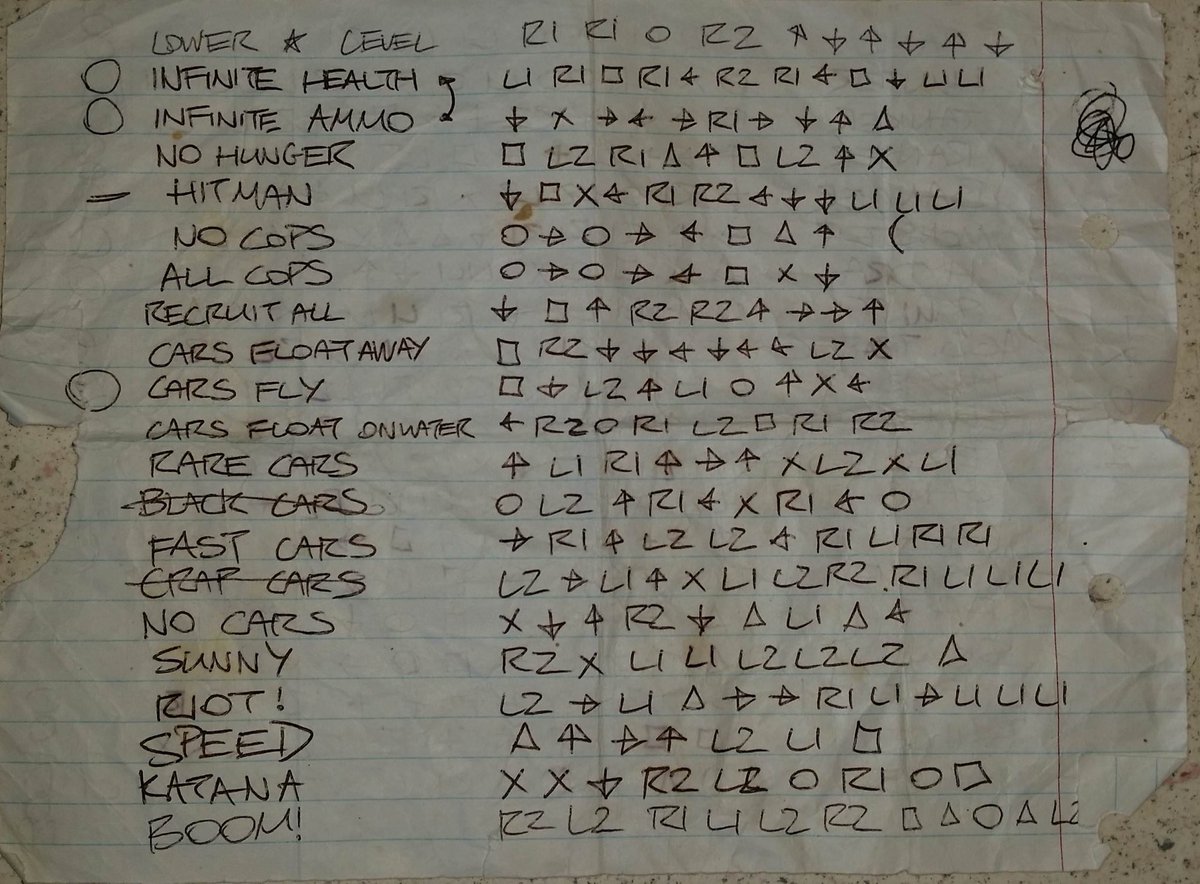 LOWER ☆ LEVEL R1 R1 ○ R2 ↑ ↓ ↑ ↓ ↑ ↓
INFINITE HEALTH L1 R1 □ R1 ← R2 R1 ← □ ↓ L1 L1
INFINITE AMMO ↓ X → ← → R1 → ↓ ↑ △
NO HUNGER □ L2 R1 △ ↑ □ L2 ↑ X
HITMAN ↓ □ X ← R1 R2 ← ↓ ↓ L1 L1 L1
NO COPS ○ → ○ → ← □ △ ↑ (
ALL COPS ○ → ○ → ← □ X ↓
RECRUIT ALL ↓ □ ↑ R2 R2 ↑ → → ↑
CARS FLOAT AWAY □ R2 ↓ ↓ ← ↓ ← ← L2 X
CARS FLY □ ↓ L2 ↑ L1 ○ ↑ X ←
CARS FLOAT ON WATER ← R2 ○ R1 L2 □ R1 R2
RARE CARS ↑ L1 R1 ↑ → ↑ X L2 X L1
BLACK CARS ○ L2 ↑ R1 ← X R1 ← ○
FAST CARS → R1 ↑ L2 L2 ← R1 L1 R1 R1
CRAP CARS L2 → L1 ↑ X L1 L2 R2 R1 L1 L1 L1
NO CARS X ↓ ↑ R2 ↓ △ L1 △ ←
SUNNY R2 X L1 L1 L2 L2 L2 △
RIOT! L2 → L1 △ → → R1 L1 → L1 L1 L1
SPEED △ ↑ → ↑ L2 L1 □
KATANA X X ↓ R2 L2 ○ R1 ○ □
BOOM! R2 L2 R1 L1 L2 R2 □ △ ○ △ L2